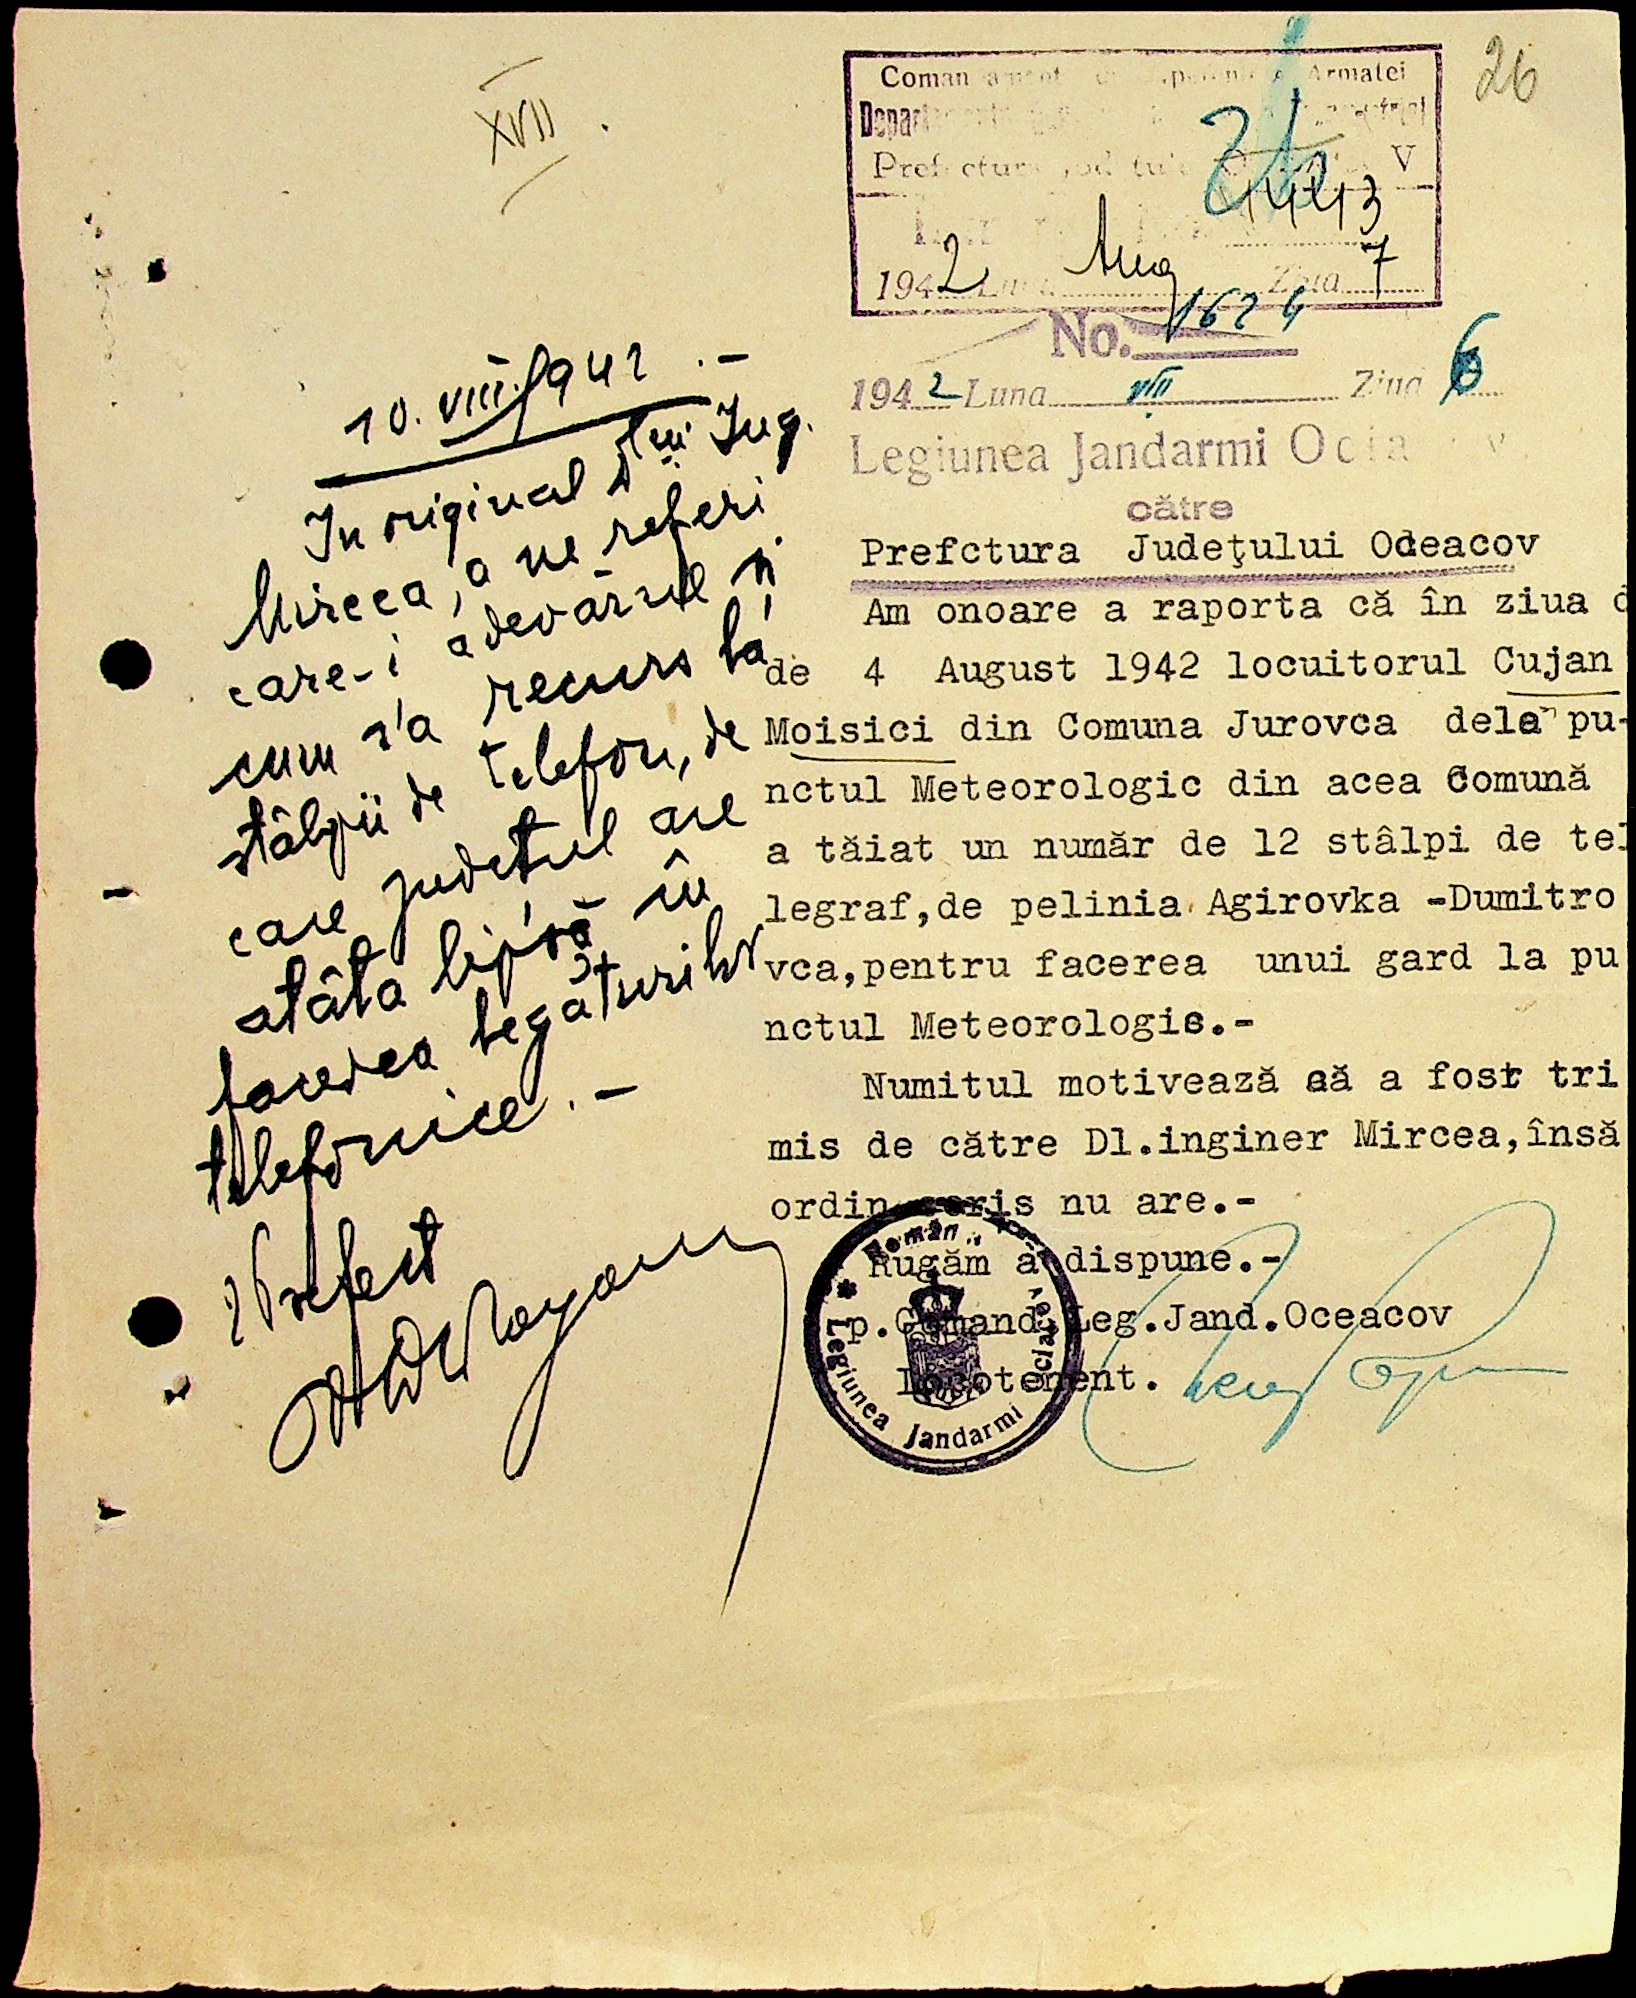 26
XVII
Armatei
V
14413
1942 Aug Ziua 7
No. 1624
1942 Luna VIII Ziua 6
Legiunea Jandarmi
către
Prefctura Judeţului Odeacov
Am onoare a raporta că în ziua d
de 4 August 1942 locuitorul Cujan
Moisici din Comuna Jurovca dela pu-
nctul Meteorologic din acea Comună
a tăiat un număr de 12 stâlpi de tel
legraf,de pelinia Agirovka -Dumitro
vca,pentru facerea unui gard la pu
nctul Meteorologic.-
Numitul motivează că a fost tri
mis de către Dl.inginer Mircea,însă
ordin scris nu are.-
Rugăm a dispune.-
p.Comand.Leg.Jand.Oceacov
Locotenent.
Legiunea Jandarmi Ociacov
10.VIII.1942.-
In original Dlui Ing.
Mircea, a ne referi
care-i adevărul și
cum s'a recurs la
stâlpii de telefon, de
care județul are
atâta lipsă în
facerea legăturilor
telefonice.-
Prefect